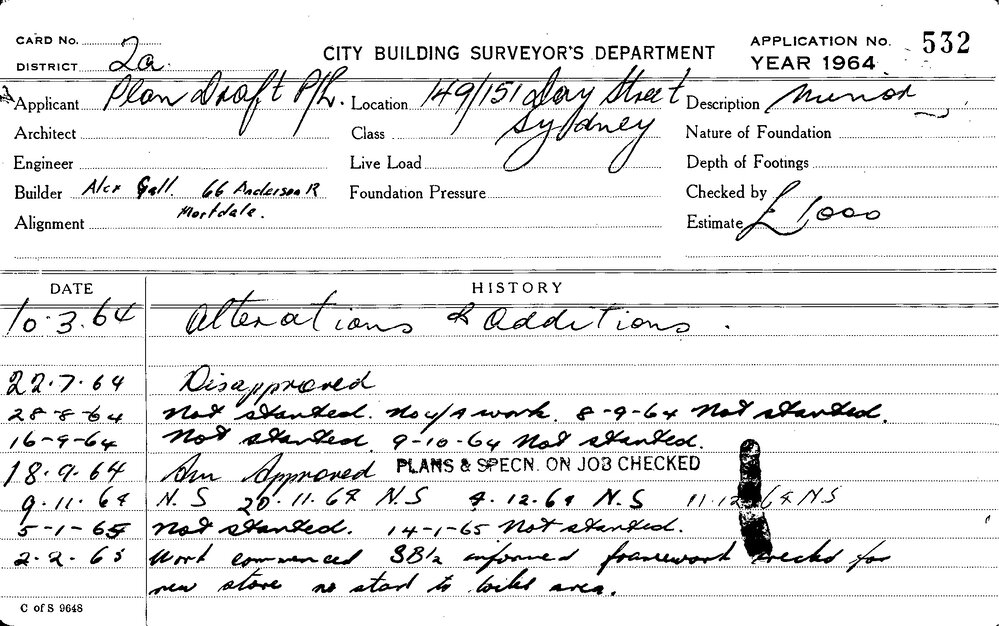 CARD No.
DISTRICT 2a.
CITY BUILDING SURVEYOR'S DEPARTMENT
APPLICATION No. 532
YEAR 1964
Applicant Plan Draft P/L. Location 149/151 Day Street Description Minor
Sydney
Architect Class Nature of Foundation
Engineer Live Load Depth of Footings
Builder Alex Gall. 66 Anderson R Foundation Pressure Checked by
Mortdale.
Alignment Estimate £1,000
DATE HISTORY
10.3.64 Alterations & Additions.
22.7.64 Disapproved
28-8-64 Not started. No work. 8-9-64 Not started.
16-9-64 Not started. 9-10-64 Not started.
18.9.64 Approved PLANS & SPECN. ON JOB CHECKED
9.11.64 N.S 20.11.64 N.S 4.12.64 N.S 11.12.64 N.S
5-1-65 Not started. 14-1-65 Not started.
2.2.65 Work commenced informed framework for
new store no start to toilet area.
C of S 9648